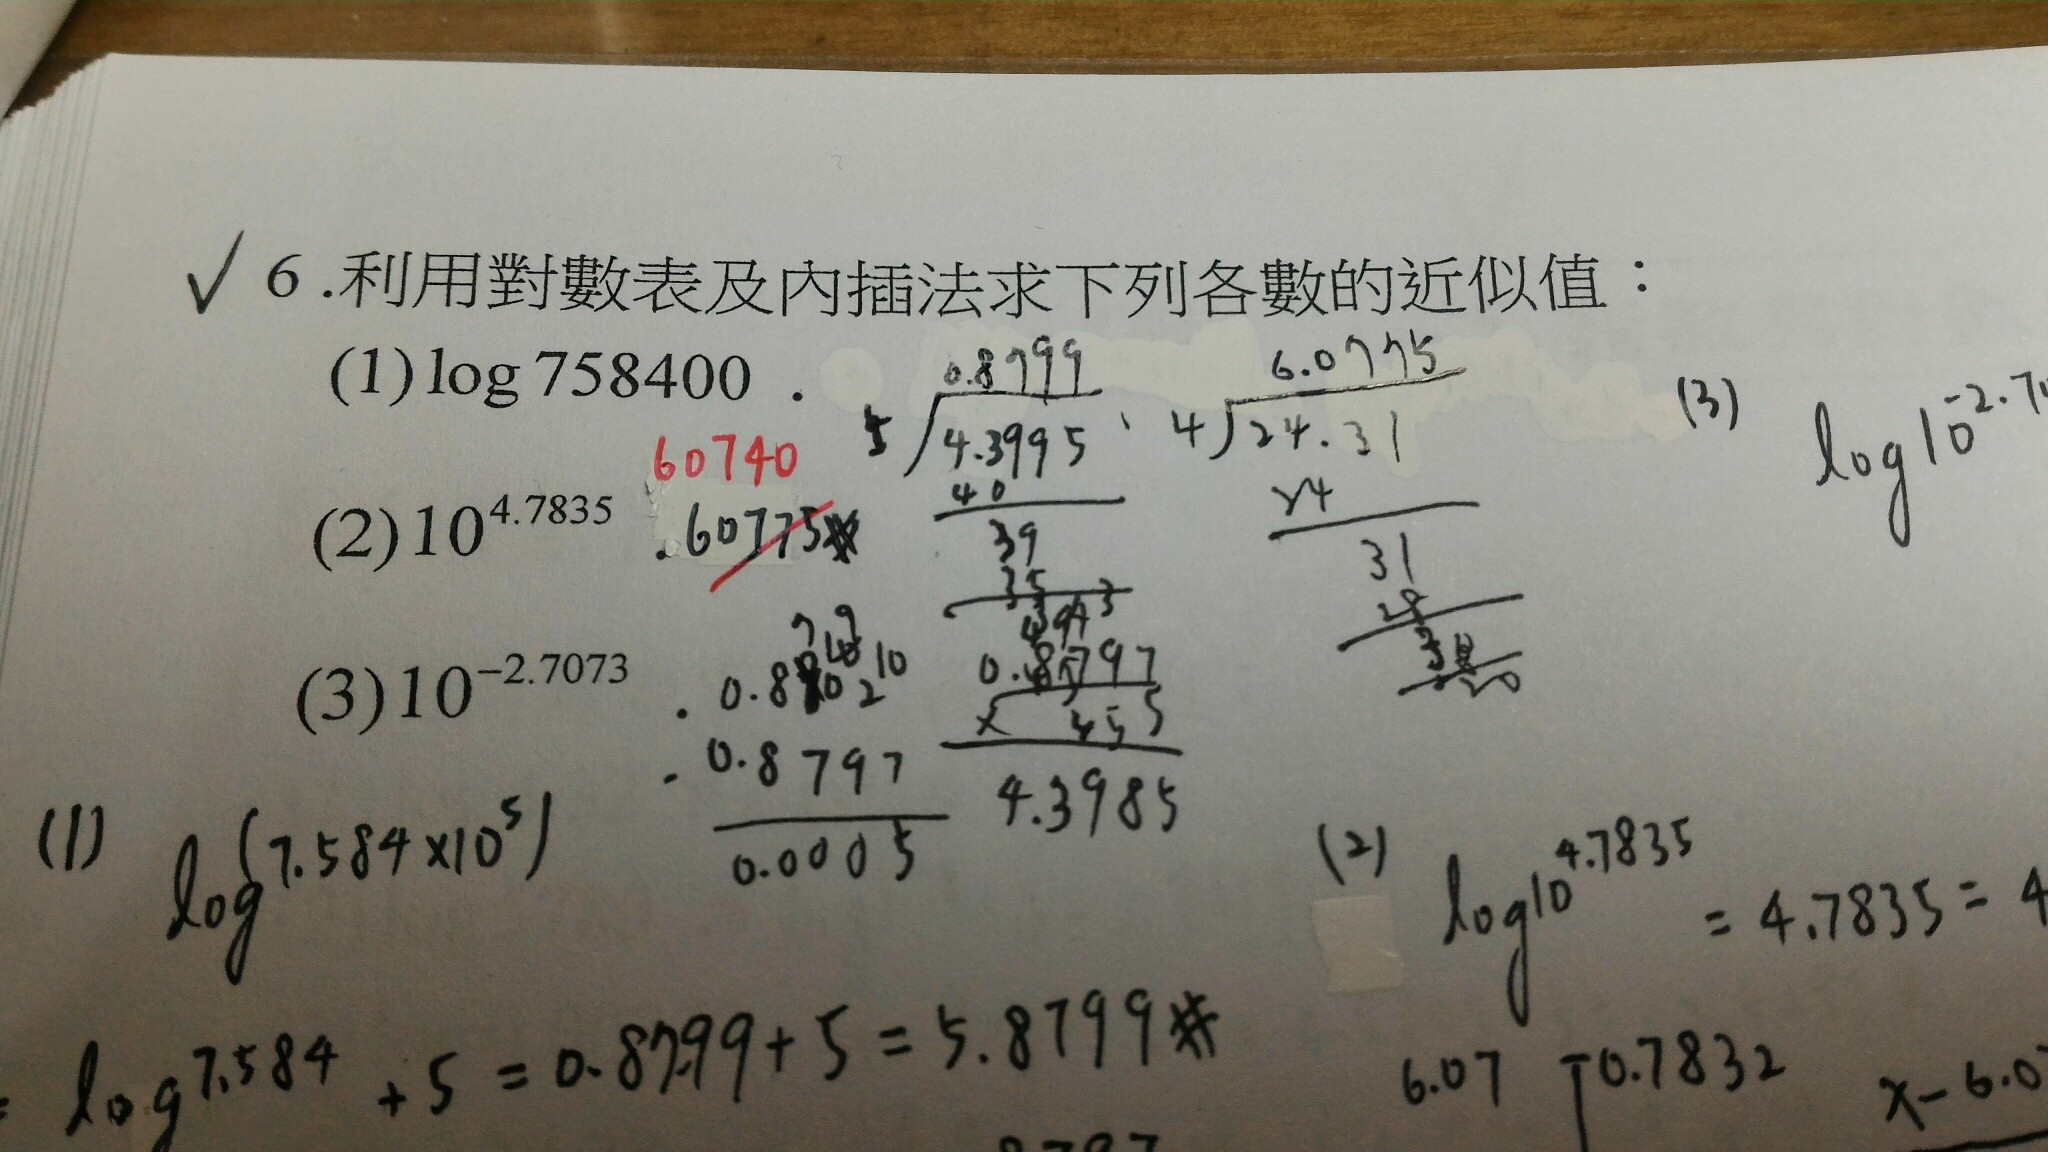 ✓ 6.利用對數表及內插法求下列各數的近似值：
(1) log 758400
0.8799
5 4.3995
40
39
35
6.0775
4 24.31
24
31
28
20
(3) log10^-2.7
60740
(2) 10^4.7835 60775
(3) 10^-2.7073
0.8802
- 0.8797
0.0005
0.8797
× 5
4.3985
(1) log(7.584×10^5)
= log7.584 + 5 = 0.8799 + 5 = 5.8799
(2) log10^4.7835 = 4.7835 = 4
6.07 0.7832 x-6.0